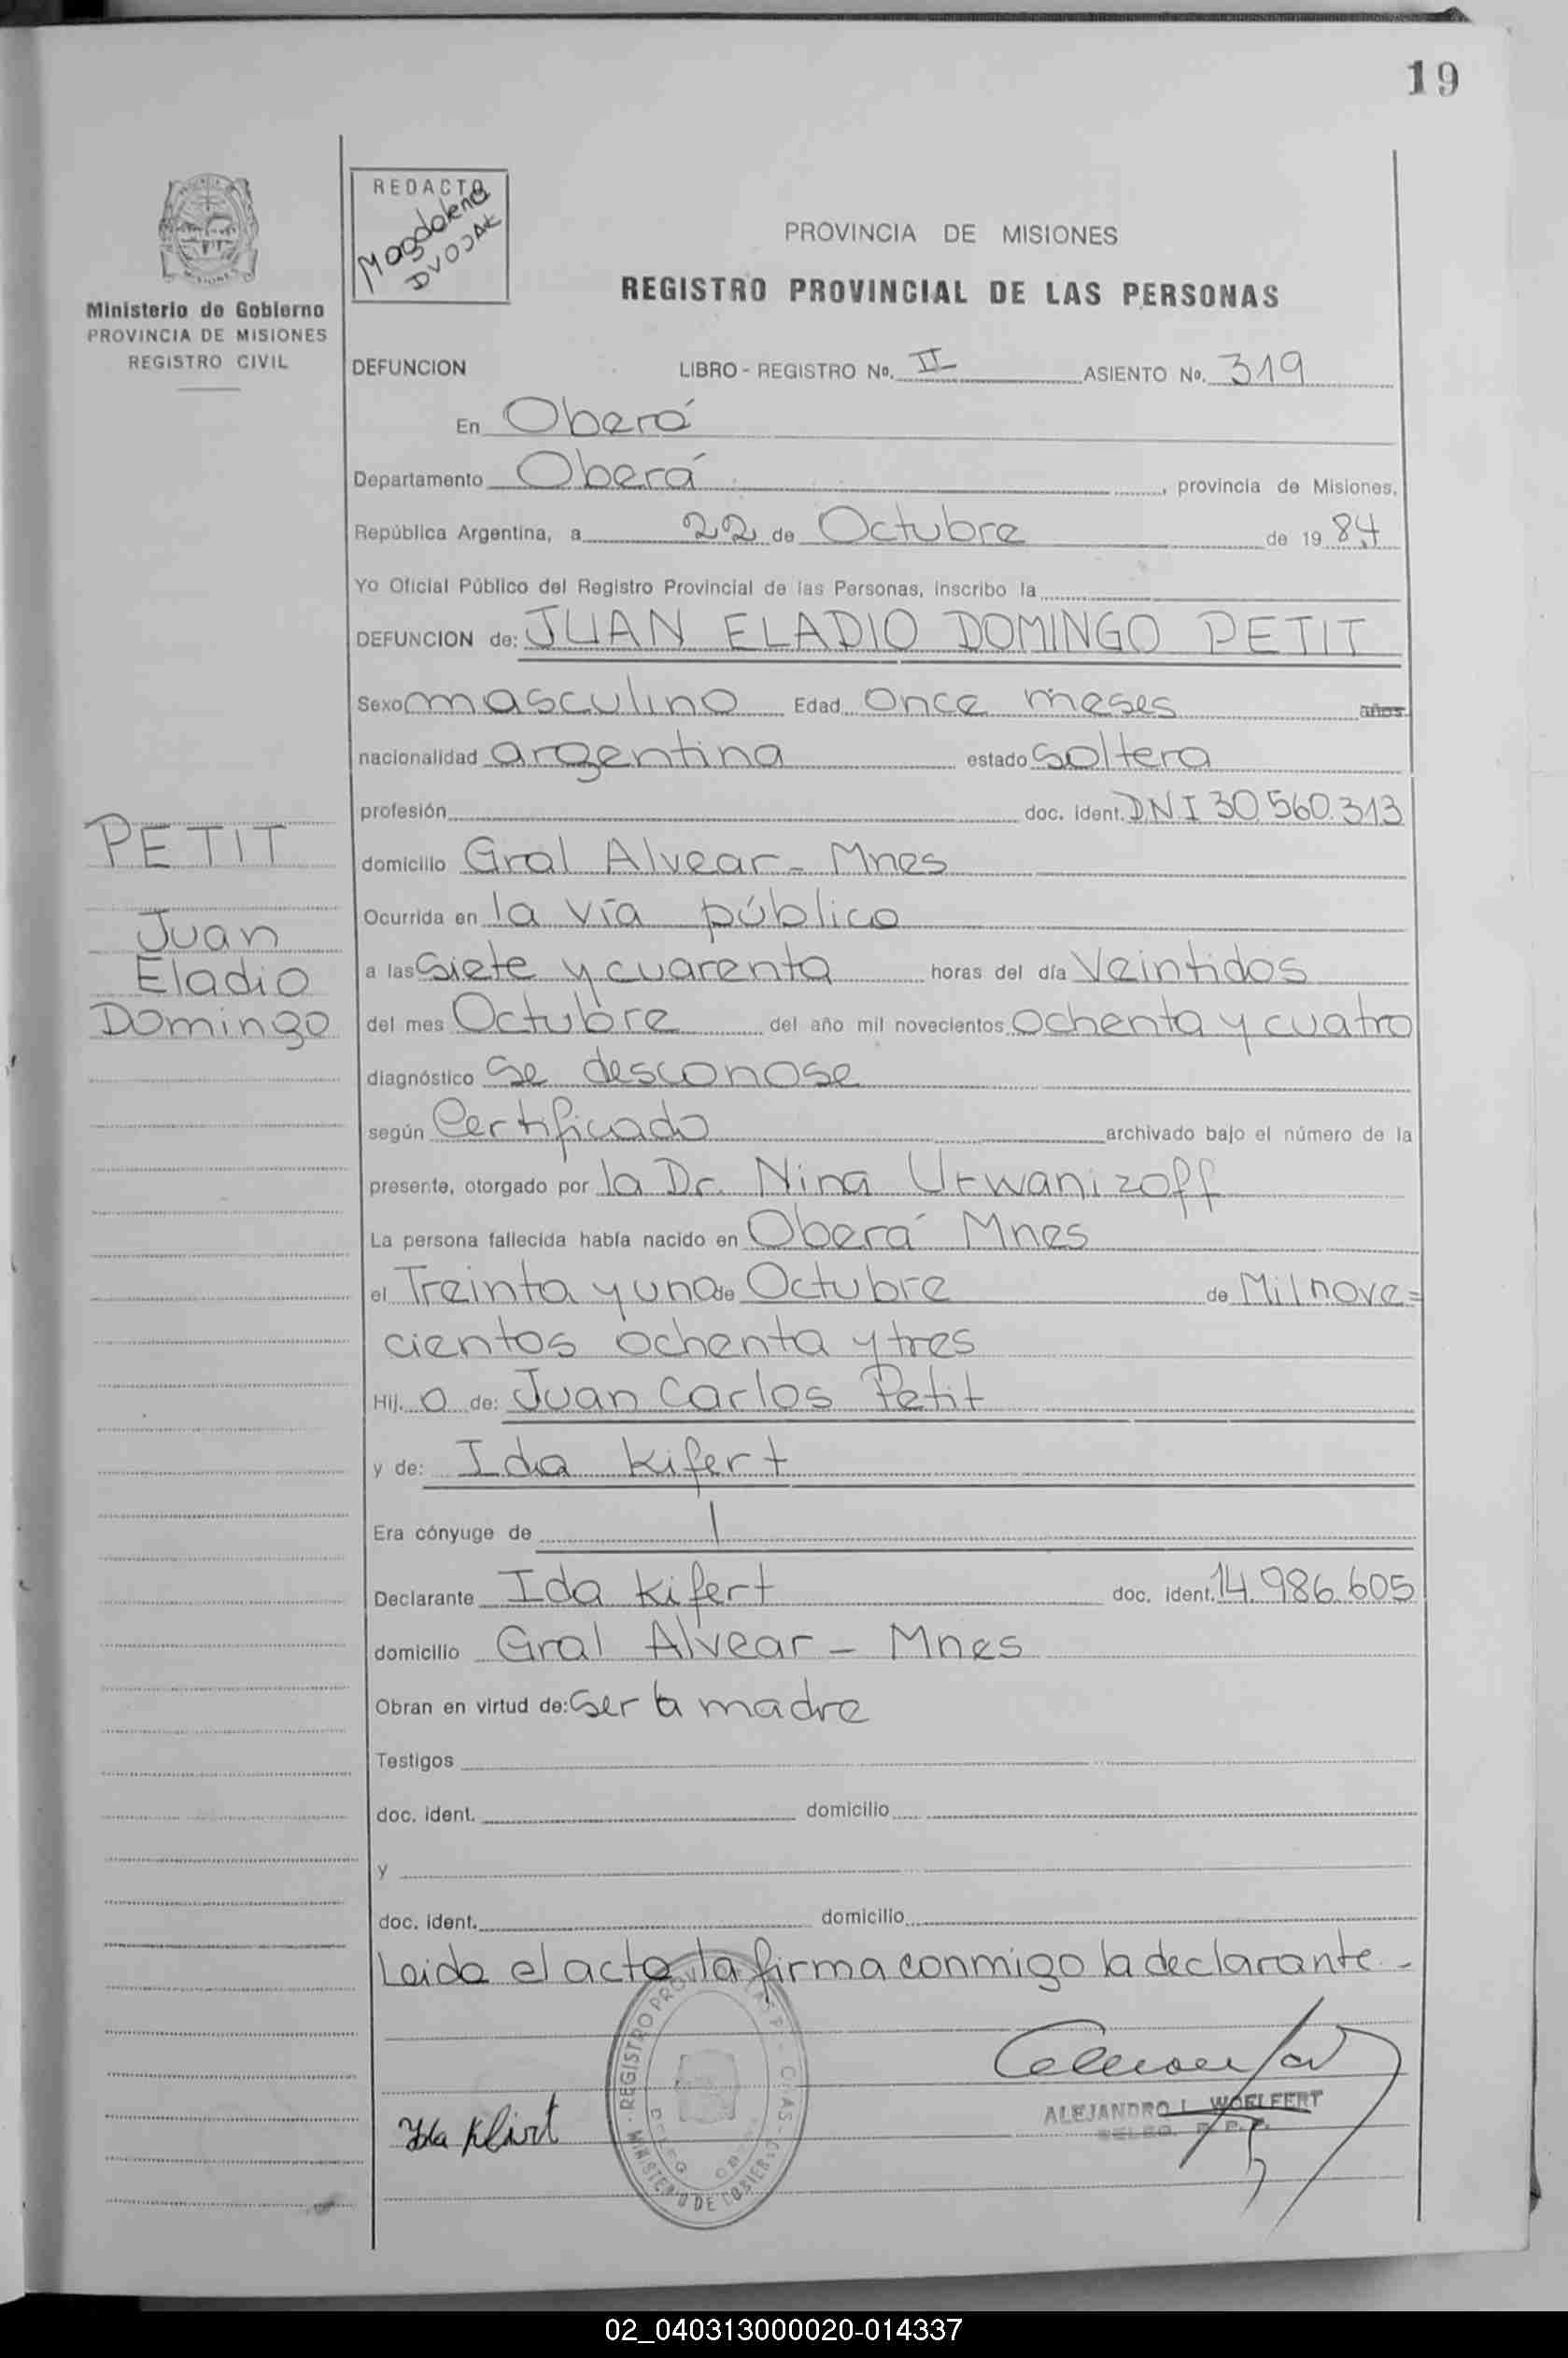 19
REDACTO
Magdalena
DVOJAK
PROVINCIA DE MISIONES
REGISTRO PROVINCIAL DE LAS PERSONAS
Ministerio de Gobierno
PROVINCIA DE MISIONES
REGISTRO CIVIL
DEFUNCION LIBRO - REGISTRO No. II ASIENTO No. 319
En Oberá
Departamento Oberá, provincia de Misiones,
República Argentina, a 22 de Octubre de 19 84
Yo Oficial Público del Registro Provincial de las Personas, inscribo la
DEFUNCION de: JUAN ELADIO DOMINGO PETIT
Sexo masculino Edad once meses años
nacionalidad argentina estado soltera
profesión doc. ident. D.N.I 30.560.313
PETIT
domicilio Gral Alvear - Mnes
Ocurrida en la vía público
Juan
Eladio
Domingo
a las siete y cuarenta horas del día Veintidos
del mes Octubre del año mil novecientos ochenta y cuatro
diagnóstico se desconose
según Certificado archivado bajo el número de la
presente, otorgado por la Dr. Nina Urwanizoff
La persona fallecida había nacido en Oberá Mnes
el Treinta y uno de Octubre de Mil nove=
cientos ochenta y tres
Hij. o de: Juan Carlos Petit
y de: Ida Kifert
Era cónyuge de
Declarante Ida Kifert doc. ident. 14.986.605
domicilio Gral Alvear - Mnes
Obran en virtud de: ser la madre
Testigos
doc. ident. domicilio
y
doc. ident. domicilio
Leida el acta la firma conmigo la declarante.-
ALEJANDRO L. WOELFERT
DELEG. R. P. P.
REGISTRO
MINISTERIO DE GOBIERNO
02_040313000020-014337